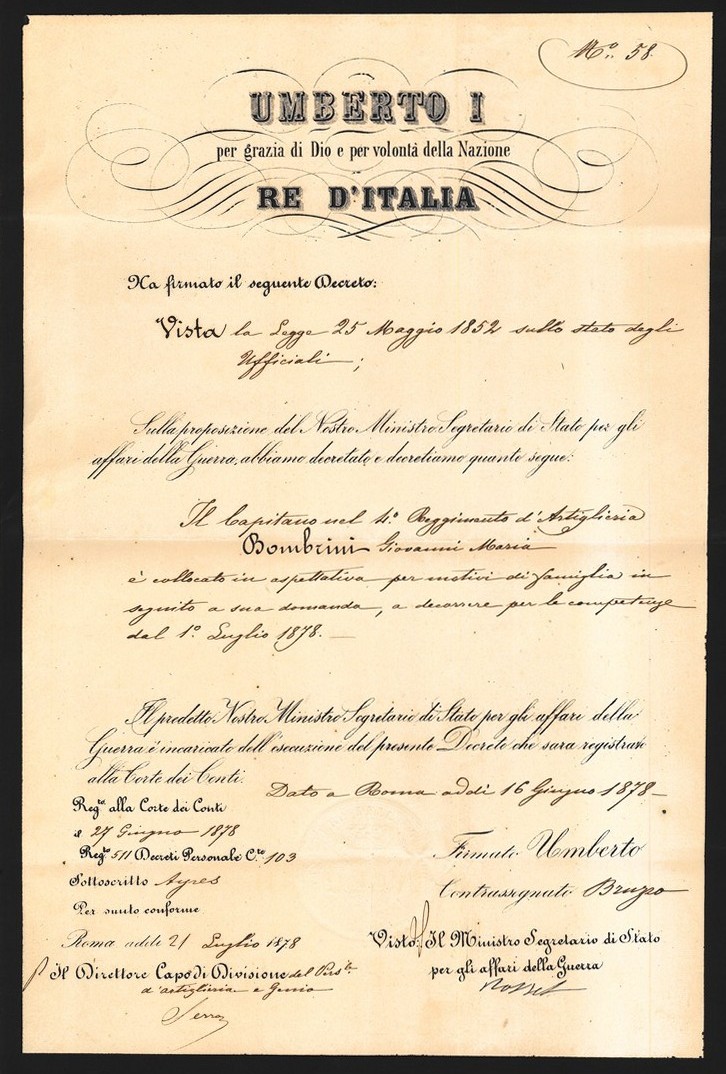 N.o 58
UMBERTO I
per grazia di Dio e per volontà della Nazione
RE D'ITALIA
Ha firmato il seguente Decreto:
Vista la Legge 25 Maggio 1852 sullo stato degli
Ufficiali;
Sulla proposizione del Nostro Ministro Segretario di Stato per gli
affari della Guerra, abbiamo decretato e decretiamo quanto segue:
Il Capitano nel 4.o Reggimento d'Artiglieria
Bombrini Giovanni Maria
è collocato in aspettativa per motivi di famiglia in
seguito a sua domanda, a decorrere per le competenze
dal 1.o Luglio 1878.
Il predetto Nostro Ministro Segretario di Stato per gli affari della
Guerra è incaricato dell'esecuzione del presente Decreto che sarà registrato
alla Corte dei Conti.
Dato a Roma addì 16 Giugno 1878
Reg.to alla Corte dei Conti
il 27 Giugno 1878
Reg.o 511 Decreti Personale C.te 103
Sottoscritto Ayres
Per sunto conforme
Roma addì 21 Luglio 1878
Il Direttore Capo di Divisione del Pers.le
d'artiglieria e Genio
Serra
Firmato Umberto
Contrassegnato Bruzzo
Visto: Il Ministro Segretario di Stato
per gli affari della Guerra